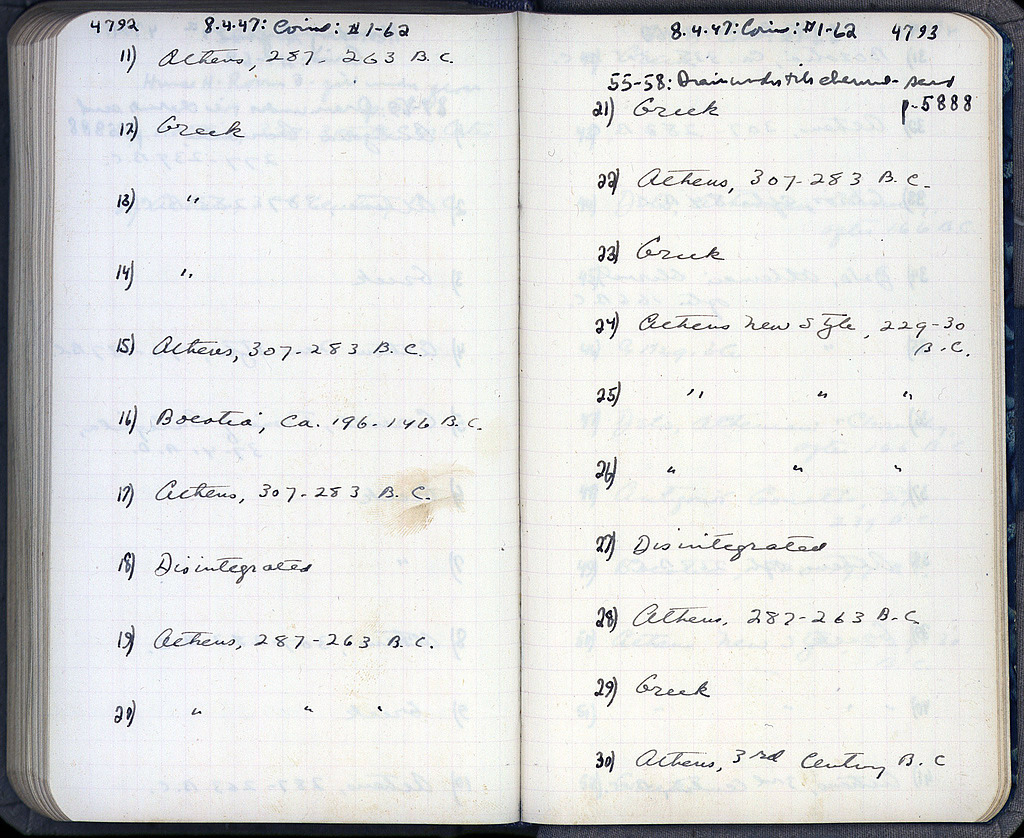 4792 8.4.47: Coins: #1-62
11) Athens, 287-263 B.C.
12) Greek
13) "
14) "
15) Athens, 307-283 B.C.
16) Boeotia, Ca. 196-146 B.C.
17) Athens, 307-283 B.C.
18) Disintegrated
19) Athens, 287-263 B.C.
20) " " "
8.4.47: Coins: #1-62 4793
55-58:
21) Greek p-5888
22) Athens, 307-283 B.C.
23) Greek
24) Athens New Style, 229-30
B.C.
25) " " "
26) " " "
27) Disintegrated
28) Athens, 287-263 B.C.
29) Greek
30) Athens, 3rd Century B.C